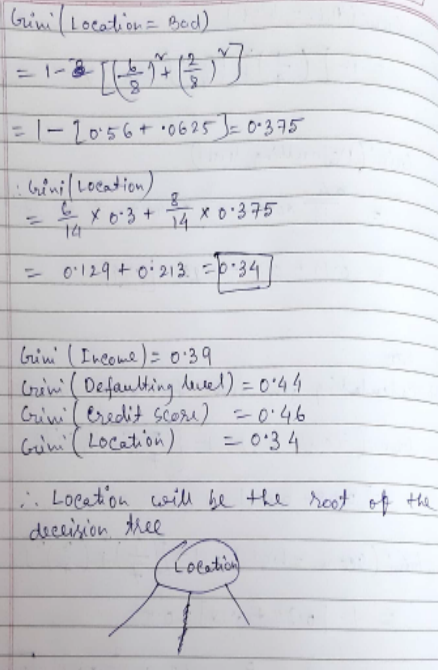 Gini (Location = Bad)
= 1 - [(6/8)² + (2/8)²]
= 1 - [0.56 + .0625] = 0.375
∴ Gini (Location)
= 6/14 × 0.3 + 8/14 × 0.375
= 0.129 + 0.213 = 0.34
Gini (Income) = 0.39
Gini (Defaulting level) = 0.44
Gini (Credit score) = 0.46
Gini (Location) = 0.34
∴ Location will be the root of the
deceision tree
Location